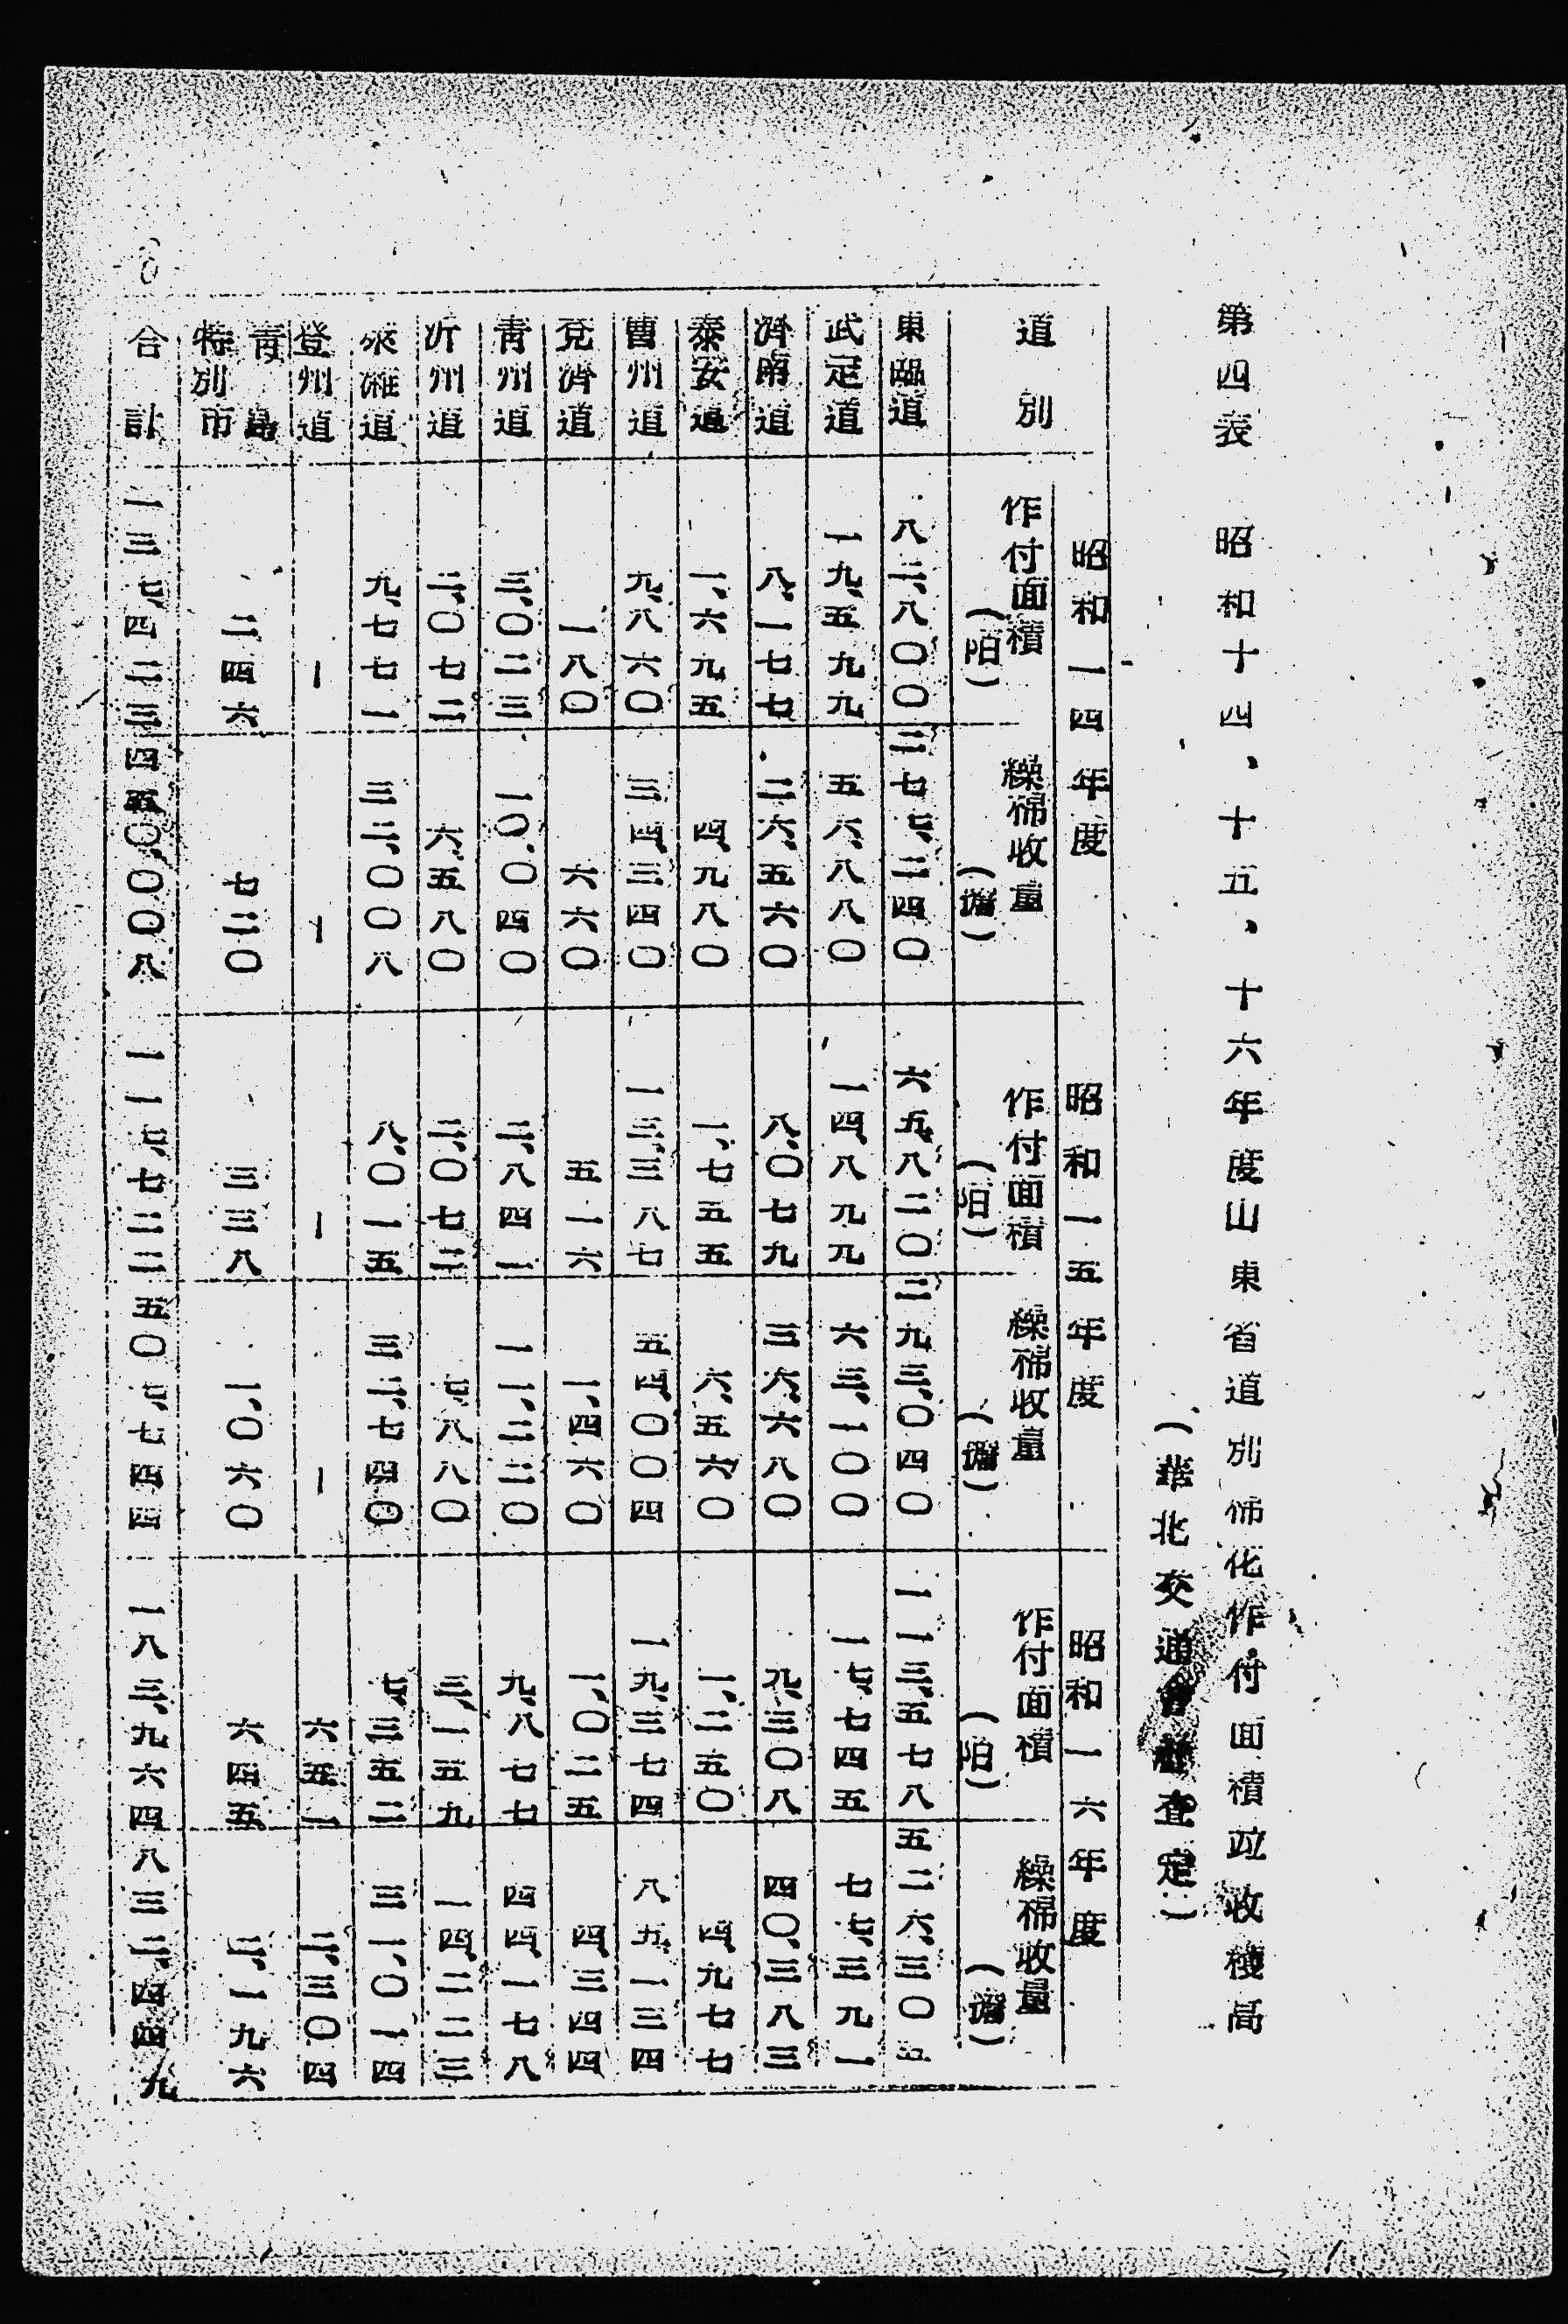 第四表　昭和十四、十五、十六年度山東省道別棉化作付面積竝收穫高
（華北交通會社査定）
昭和一四年度　昭和一五年度　昭和一六年度
道別　作付面積（陌）　繰綿收量（擔）　作付面積（陌）　繰綿收量（擔）　作付面積（陌）　繰綿收量（擔）
東臨道　八二、八〇〇　二七七、二四〇　六五、八二〇　二九三、〇四〇　一一三、五七八　五二六、三〇五
武定道　一九、五九九　五六、八八〇　一四、八九九　六三、一〇〇　一七、七四五　七七、三九一
濟南道　八、一七七　二六、五六〇　八、〇七九　三六、六八〇　九、三〇八　四〇、三八三
泰安道　一、六九五　四、九八〇　一、七五五　六、五六〇　一、二五〇　四、九七七
曹州道　九、八六〇　三四、三四〇　一三、三八七　五四、〇〇四　一九、三七四　八五、一三四
兗濟道　一八〇　六六〇　五一六　一、四六〇　一、〇二五　四、三四四
青州道　三、〇二三　一〇、〇四〇　二、八四一　一一、二二〇　九、八七七　四四、一七八
沂州道　二、〇七二　六、五八〇　二、〇七二　七、八八〇　三、一五九　一四、二二三
萊濰道　九、七七一　三二、〇〇八　八、〇一五　三二、七四〇　七、三五二　三一、〇一四
登州道　—　—　—　—　六五一　二、三〇四
青島特別市　二四六　七二〇　三三八　一、〇六〇　六四五　二、一九六
合計　一三七、四二三　四五〇、〇〇八　一一七、七二二　五〇七、七四四　一八三、九六四　八三二、四四九